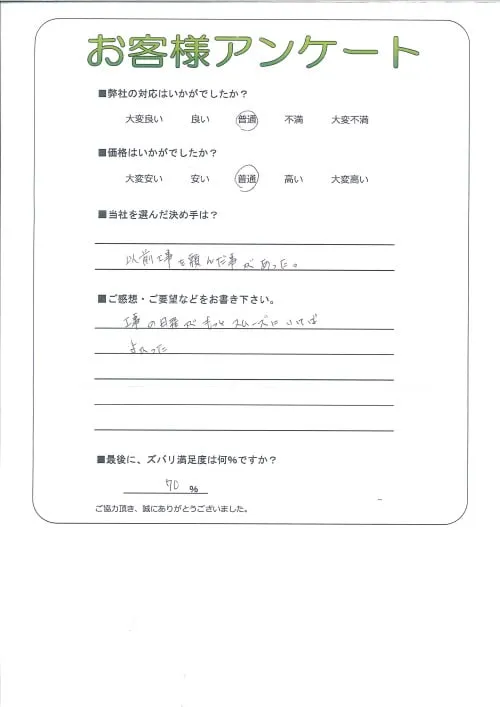 お客様アンケート
■弊社の対応はいかがでしたか？
大変良い 良い 普通 不満 大変不満
■価格はいかがでしたか？
大変安い 安い 普通 高い 大変高い
■当社を選んだ決め手は？
以前工事を頼んだ事があった。
■ご感想・ご要望などをお書き下さい。
工事の日程がもっとスムーズにいけば
よかった
■最後に、ズバリ満足度は何％ですか？
70 ％
ご協力頂き、誠にありがとうございました。